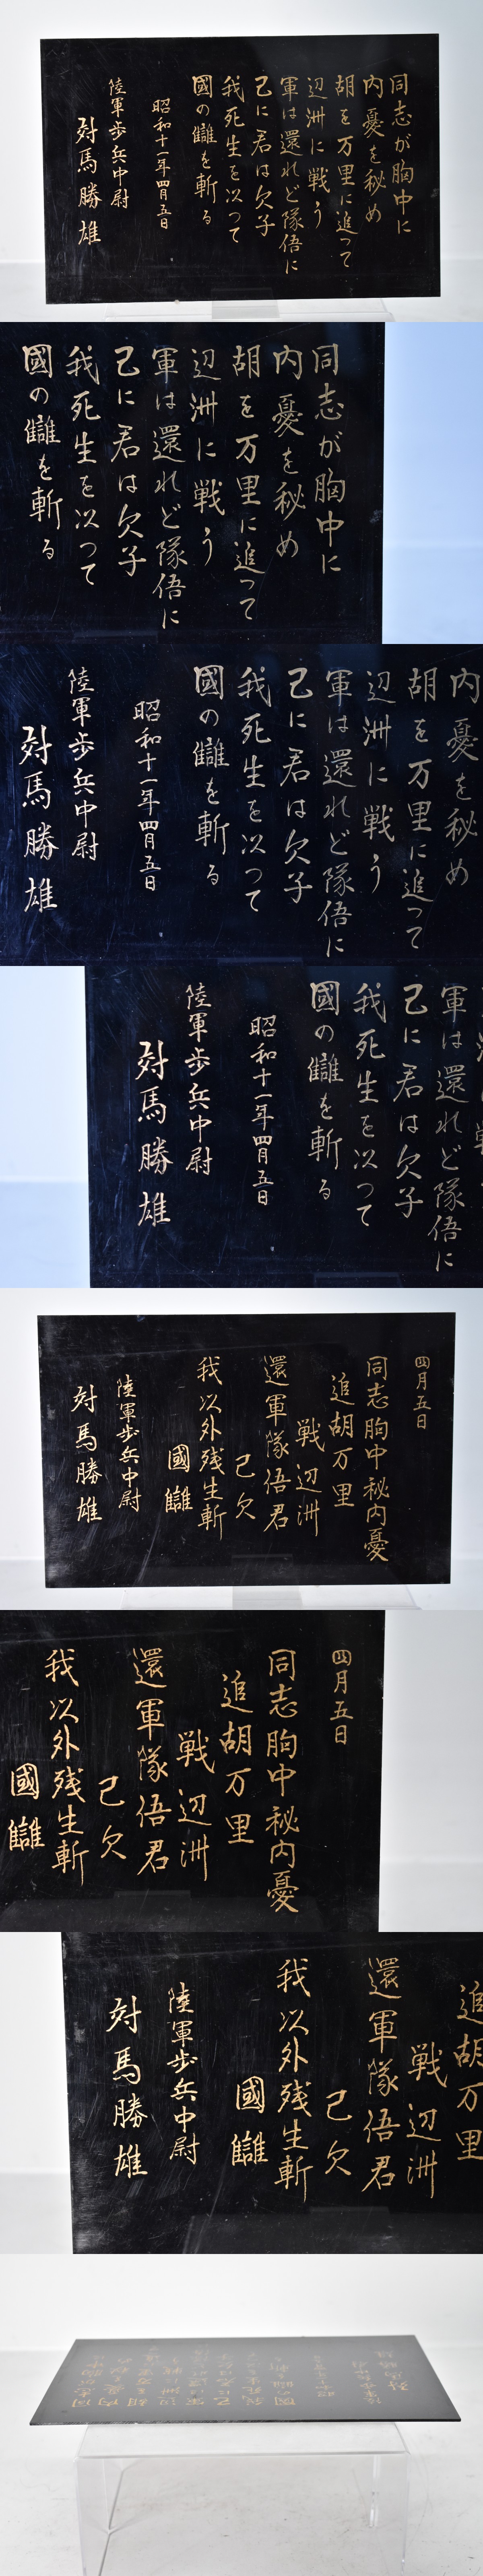 同志が胸中に
内憂を秘め
胡を万里に追って
辺洲に戦う
軍は還れど隊伍に
己に君は欠子
我死生を以つて
國の讎を斬る
昭和十一年四月五日
陸軍歩兵中尉
対馬勝雄
同志が胸中に
内憂を秘め
胡を万里に追って
辺洲に戦う
軍は還れど隊伍に
己に君は欠子
我死生を以つて
國の讎を斬る
内憂を秘め
胡を万里に追って
辺洲に戦う
軍は還れど隊伍に
己に君は欠子
我死生を以つて
國の讎を斬る
昭和十一年四月五日
陸軍歩兵中尉
対馬勝雄
軍は還れど隊伍に
己に君は欠子
我死生を以つて
國の讎を斬る
昭和十一年四月五日
陸軍歩兵中尉
対馬勝雄
四月五日
同志胸中秘内憂
追胡万里
戦辺洲
還軍隊伍君
己欠
我以外残生斬
國讎
陸軍歩兵中尉
対馬勝雄
四月五日
同志胸中秘内憂
追胡万里
戦辺洲
還軍隊伍君
己欠
我以外残生斬
國讎
追胡万里
戦辺洲
還軍隊伍君
己欠
我以外残生斬
國讎
陸軍歩兵中尉
対馬勝雄